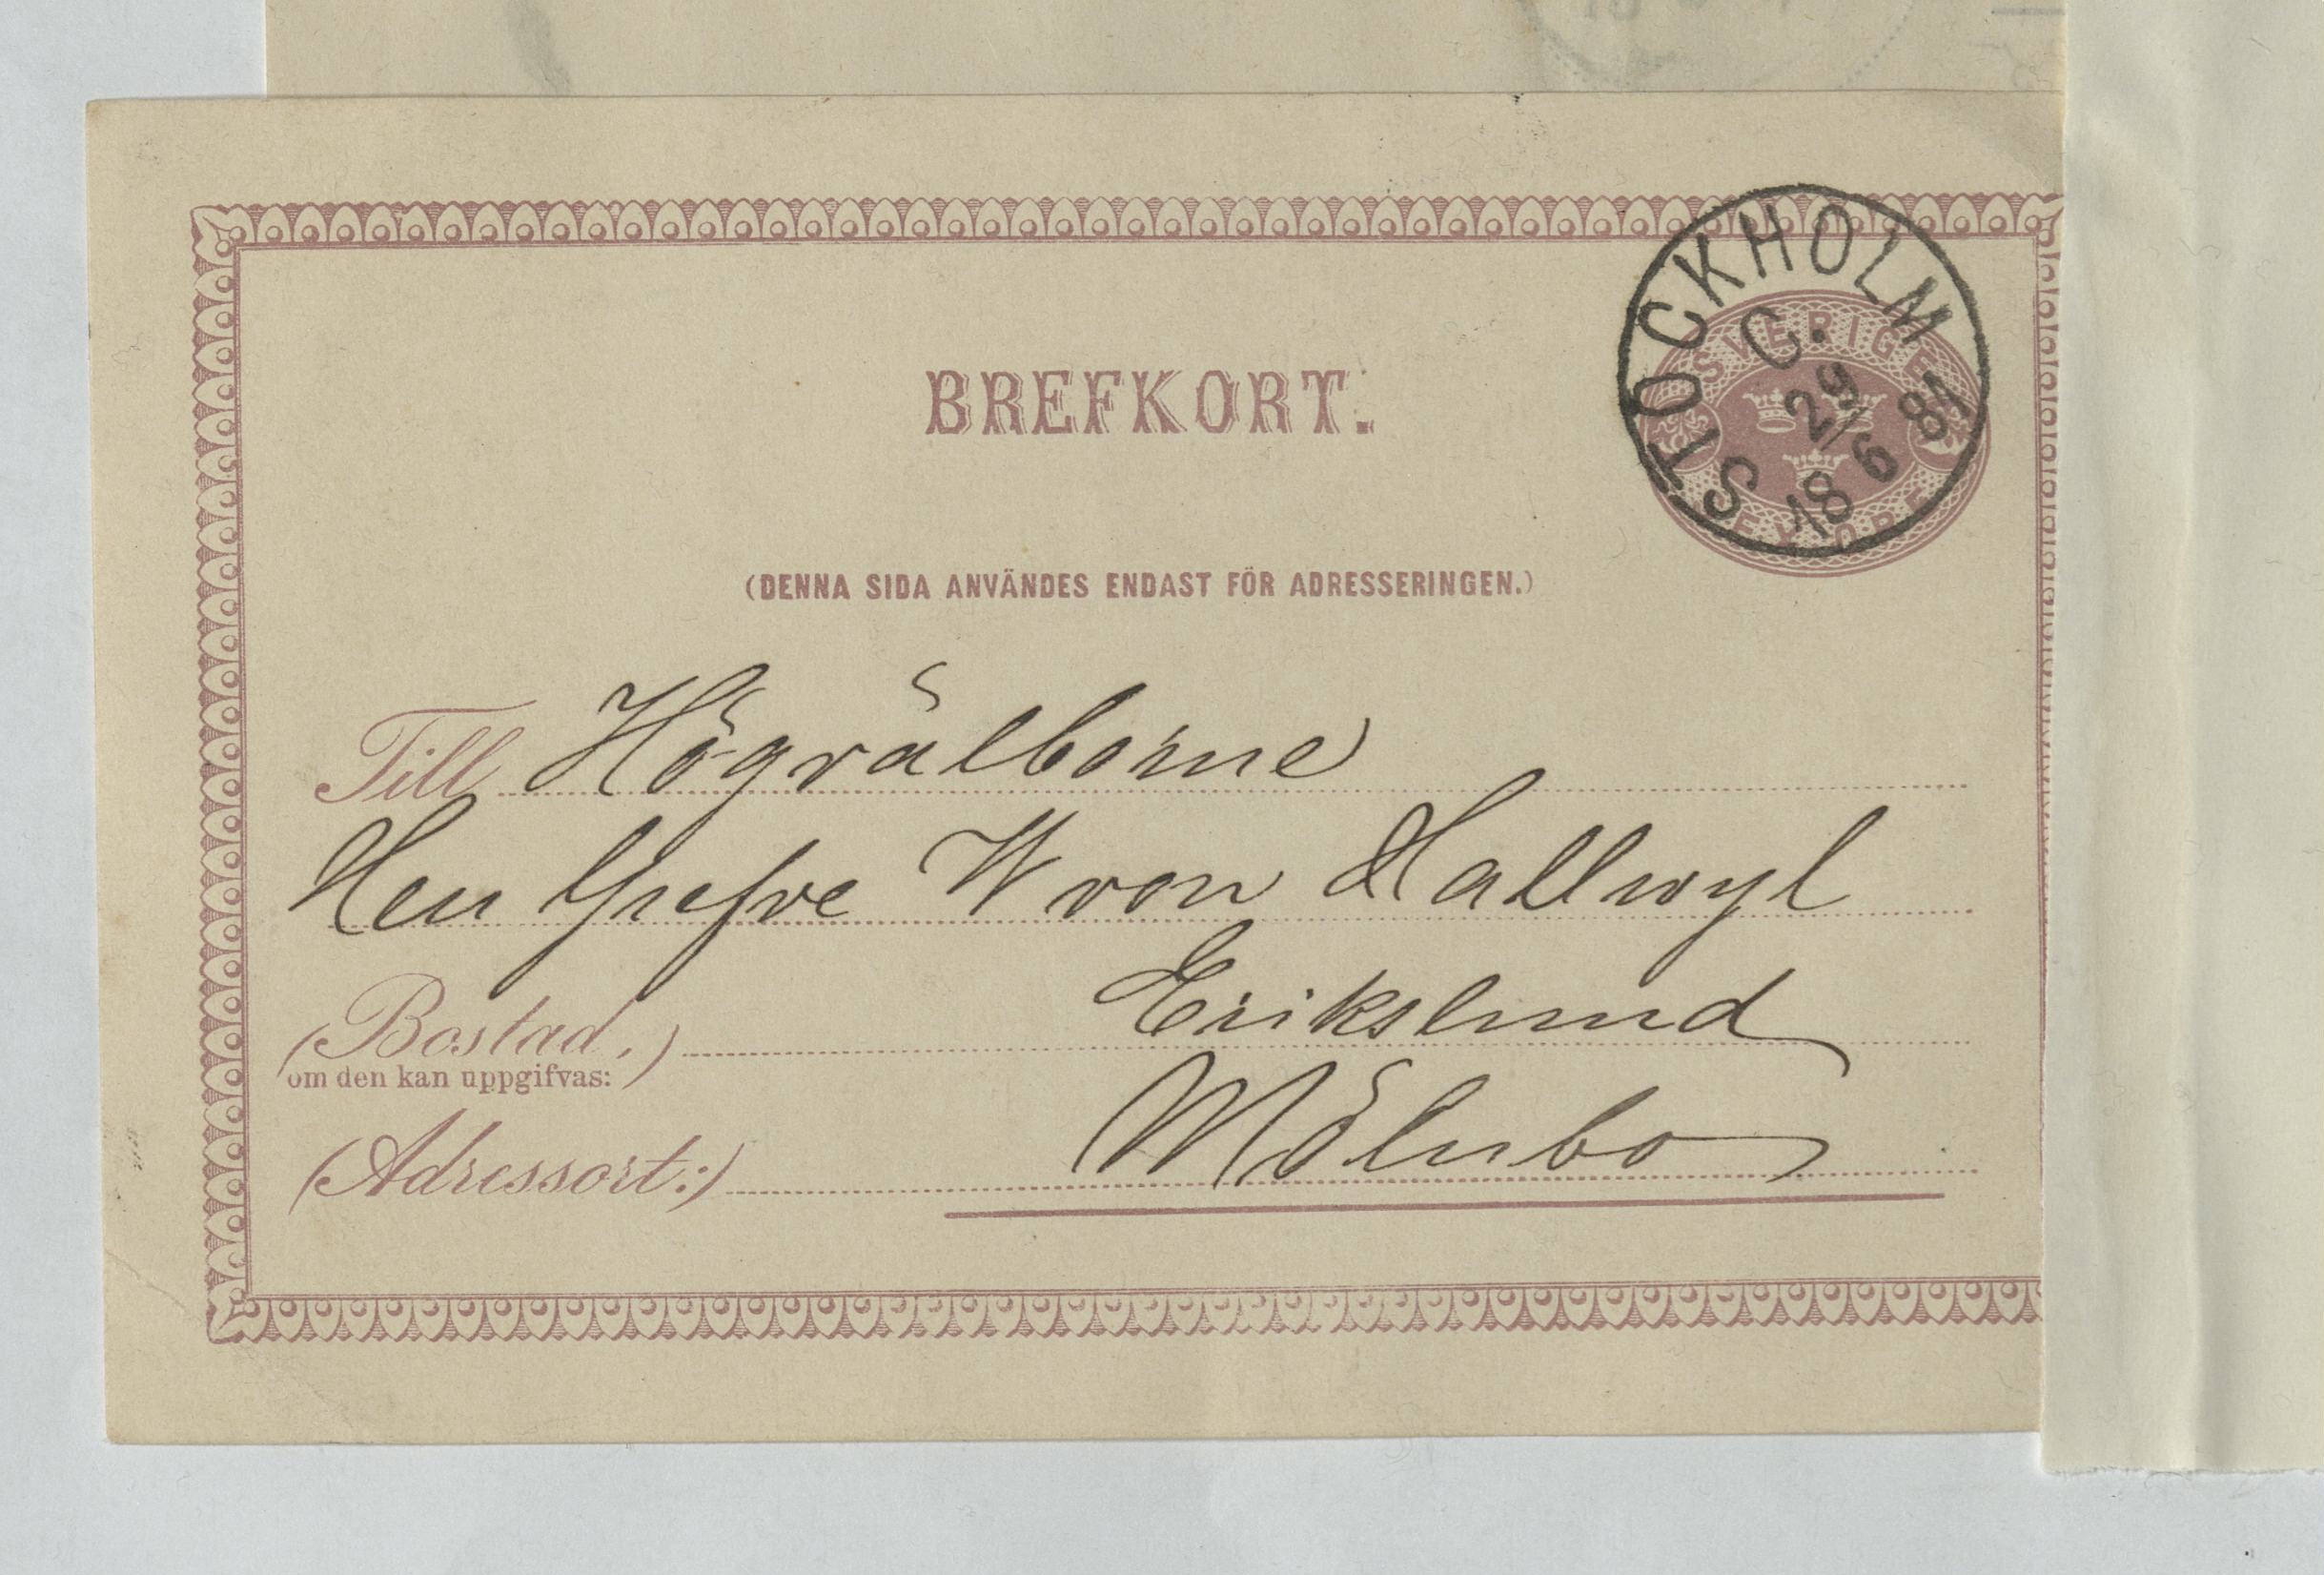 BREFKORT.
STOCKHOLM
C.
29/6
18 81
SVERIGE
SEX ÖRE
(DENNA SIDA ANVÄNDES ENDAST FÖR ADRESSERINGEN.)
Till Högvälborne
Herr Grefve W von Hallwyl
(Bostad,) Erikslund
om den kan uppgifvas:
(Adressort:) Mölnbo